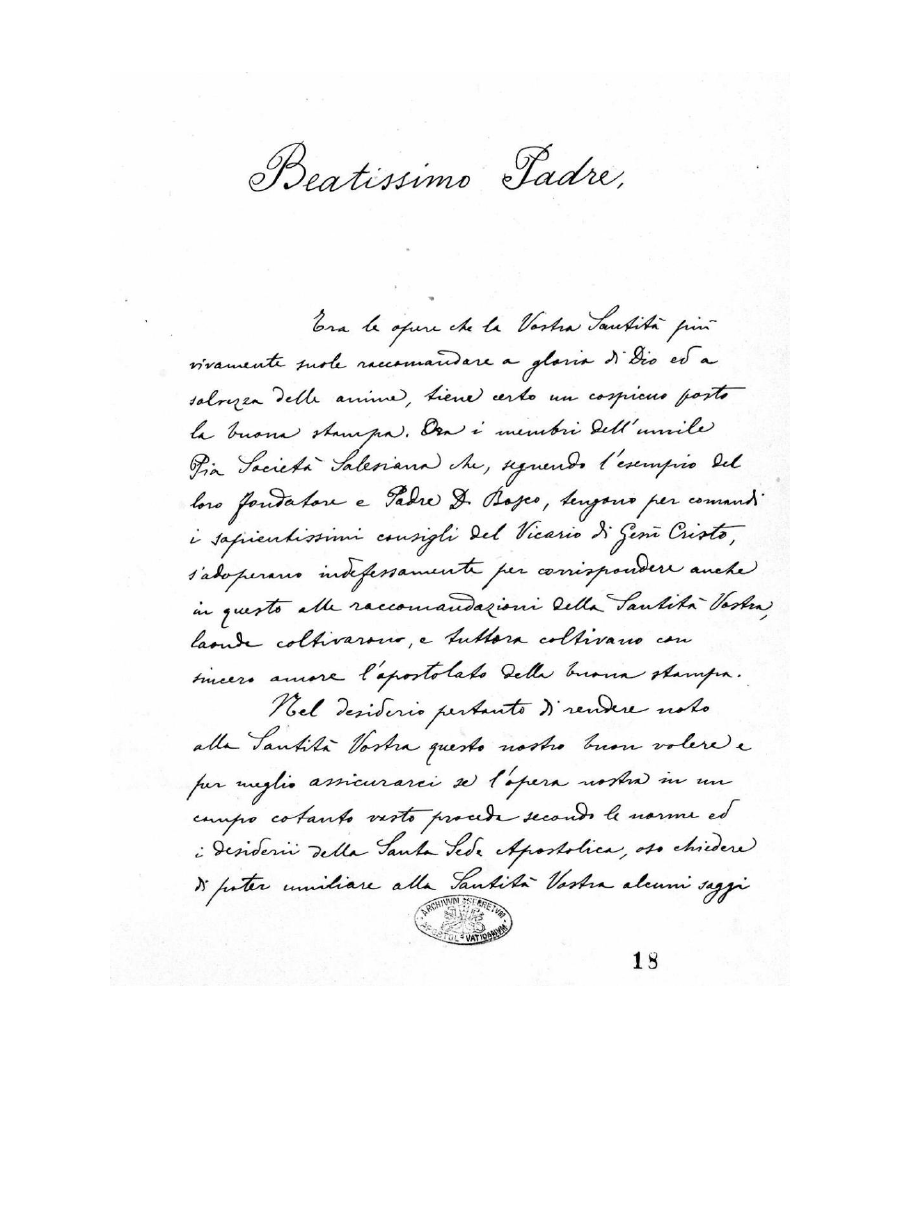 Beatissimo Padre,
Tra le opere che la Vostra Santità più
vivamente suole raccomandare a gloria di Dio ed a
salvezza delle anime, tiene certo un cospicuo posto
la buona stampa. Ora i membri dell'umile
Pia Società Salesiana che, seguendo l'esempio del
loro fondatore e Padre D. Bosco, tengono per comandi
i sapientissimi consigli del Vicario di Gesù Cristo,
s'adoperano indefessamente per corrispondere anche
in questo alle raccomandazioni della Santità Vostra,
laonde coltivarono, e tuttora coltivano con
sincero amore l'apostolato della buona stampa.
Nel desiderio pertanto di rendere noto
alla Santità Vostra questo nostro buon volere e
per meglio assicurarci se l'opera nostra in un
campo cotanto vasto proceda secondo le norme ed
i desiderii della Santa Sede Apostolica, oso chiedere
di poter umiliare alla Santità Vostra alcuni saggi
ARCHIVUM SECRETUM
APOSTOL. VATICANUM
18